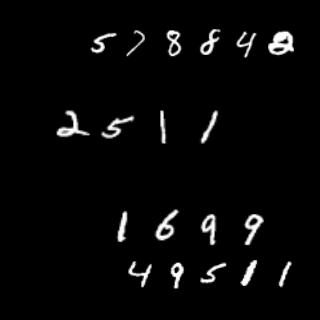 578842
2511
1699
49511